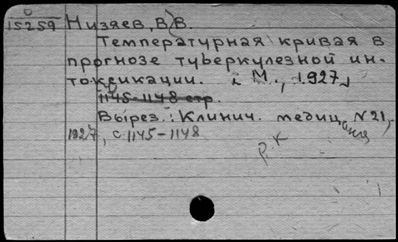 О
15259 Низяев, В.В.
Температурная кривая в
прогнозе туберкулезной ин-
токсикации. [М., 1927]
1145-1148 стр.
Вырез.: Клинич. медицина, N21,
1927, с. 1145-1148
р. К